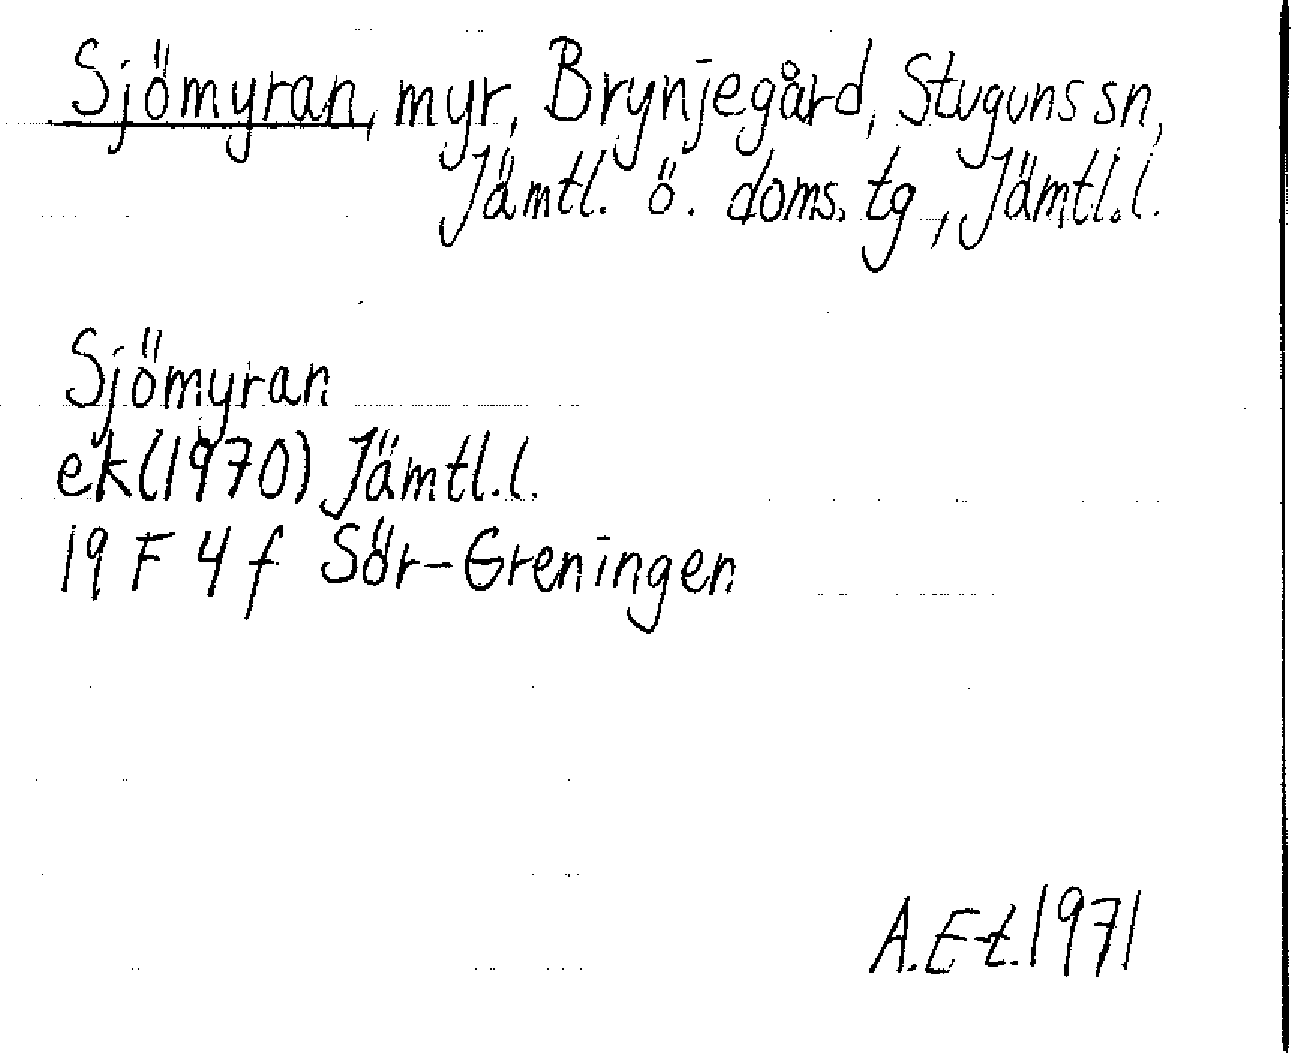 Sjömyran, myr, Brynjegård, Stuguns sn,
Jämtl. ö. doms. tg, Jämtl.l.
Sjömyran
ek(1970) Jämtl.l.
19 F 4 f Sör-Greningen
A.E-t.1971